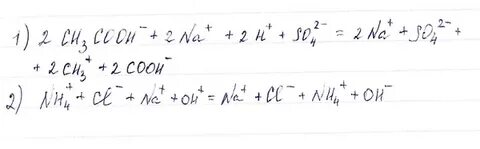 1) 2 CH₃COOH⁻ + 2 Na⁺ + 2 H⁺ + SO₄²⁻ = 2 Na⁺ + SO₄²⁻ +
+ 2 CH₃⁺ + 2 COOH⁻
2) NH₄⁺ + Cl⁻ + Na⁺ + OH⁺ = Na⁺ + Cl⁻ + NH₄⁺ + OH⁻